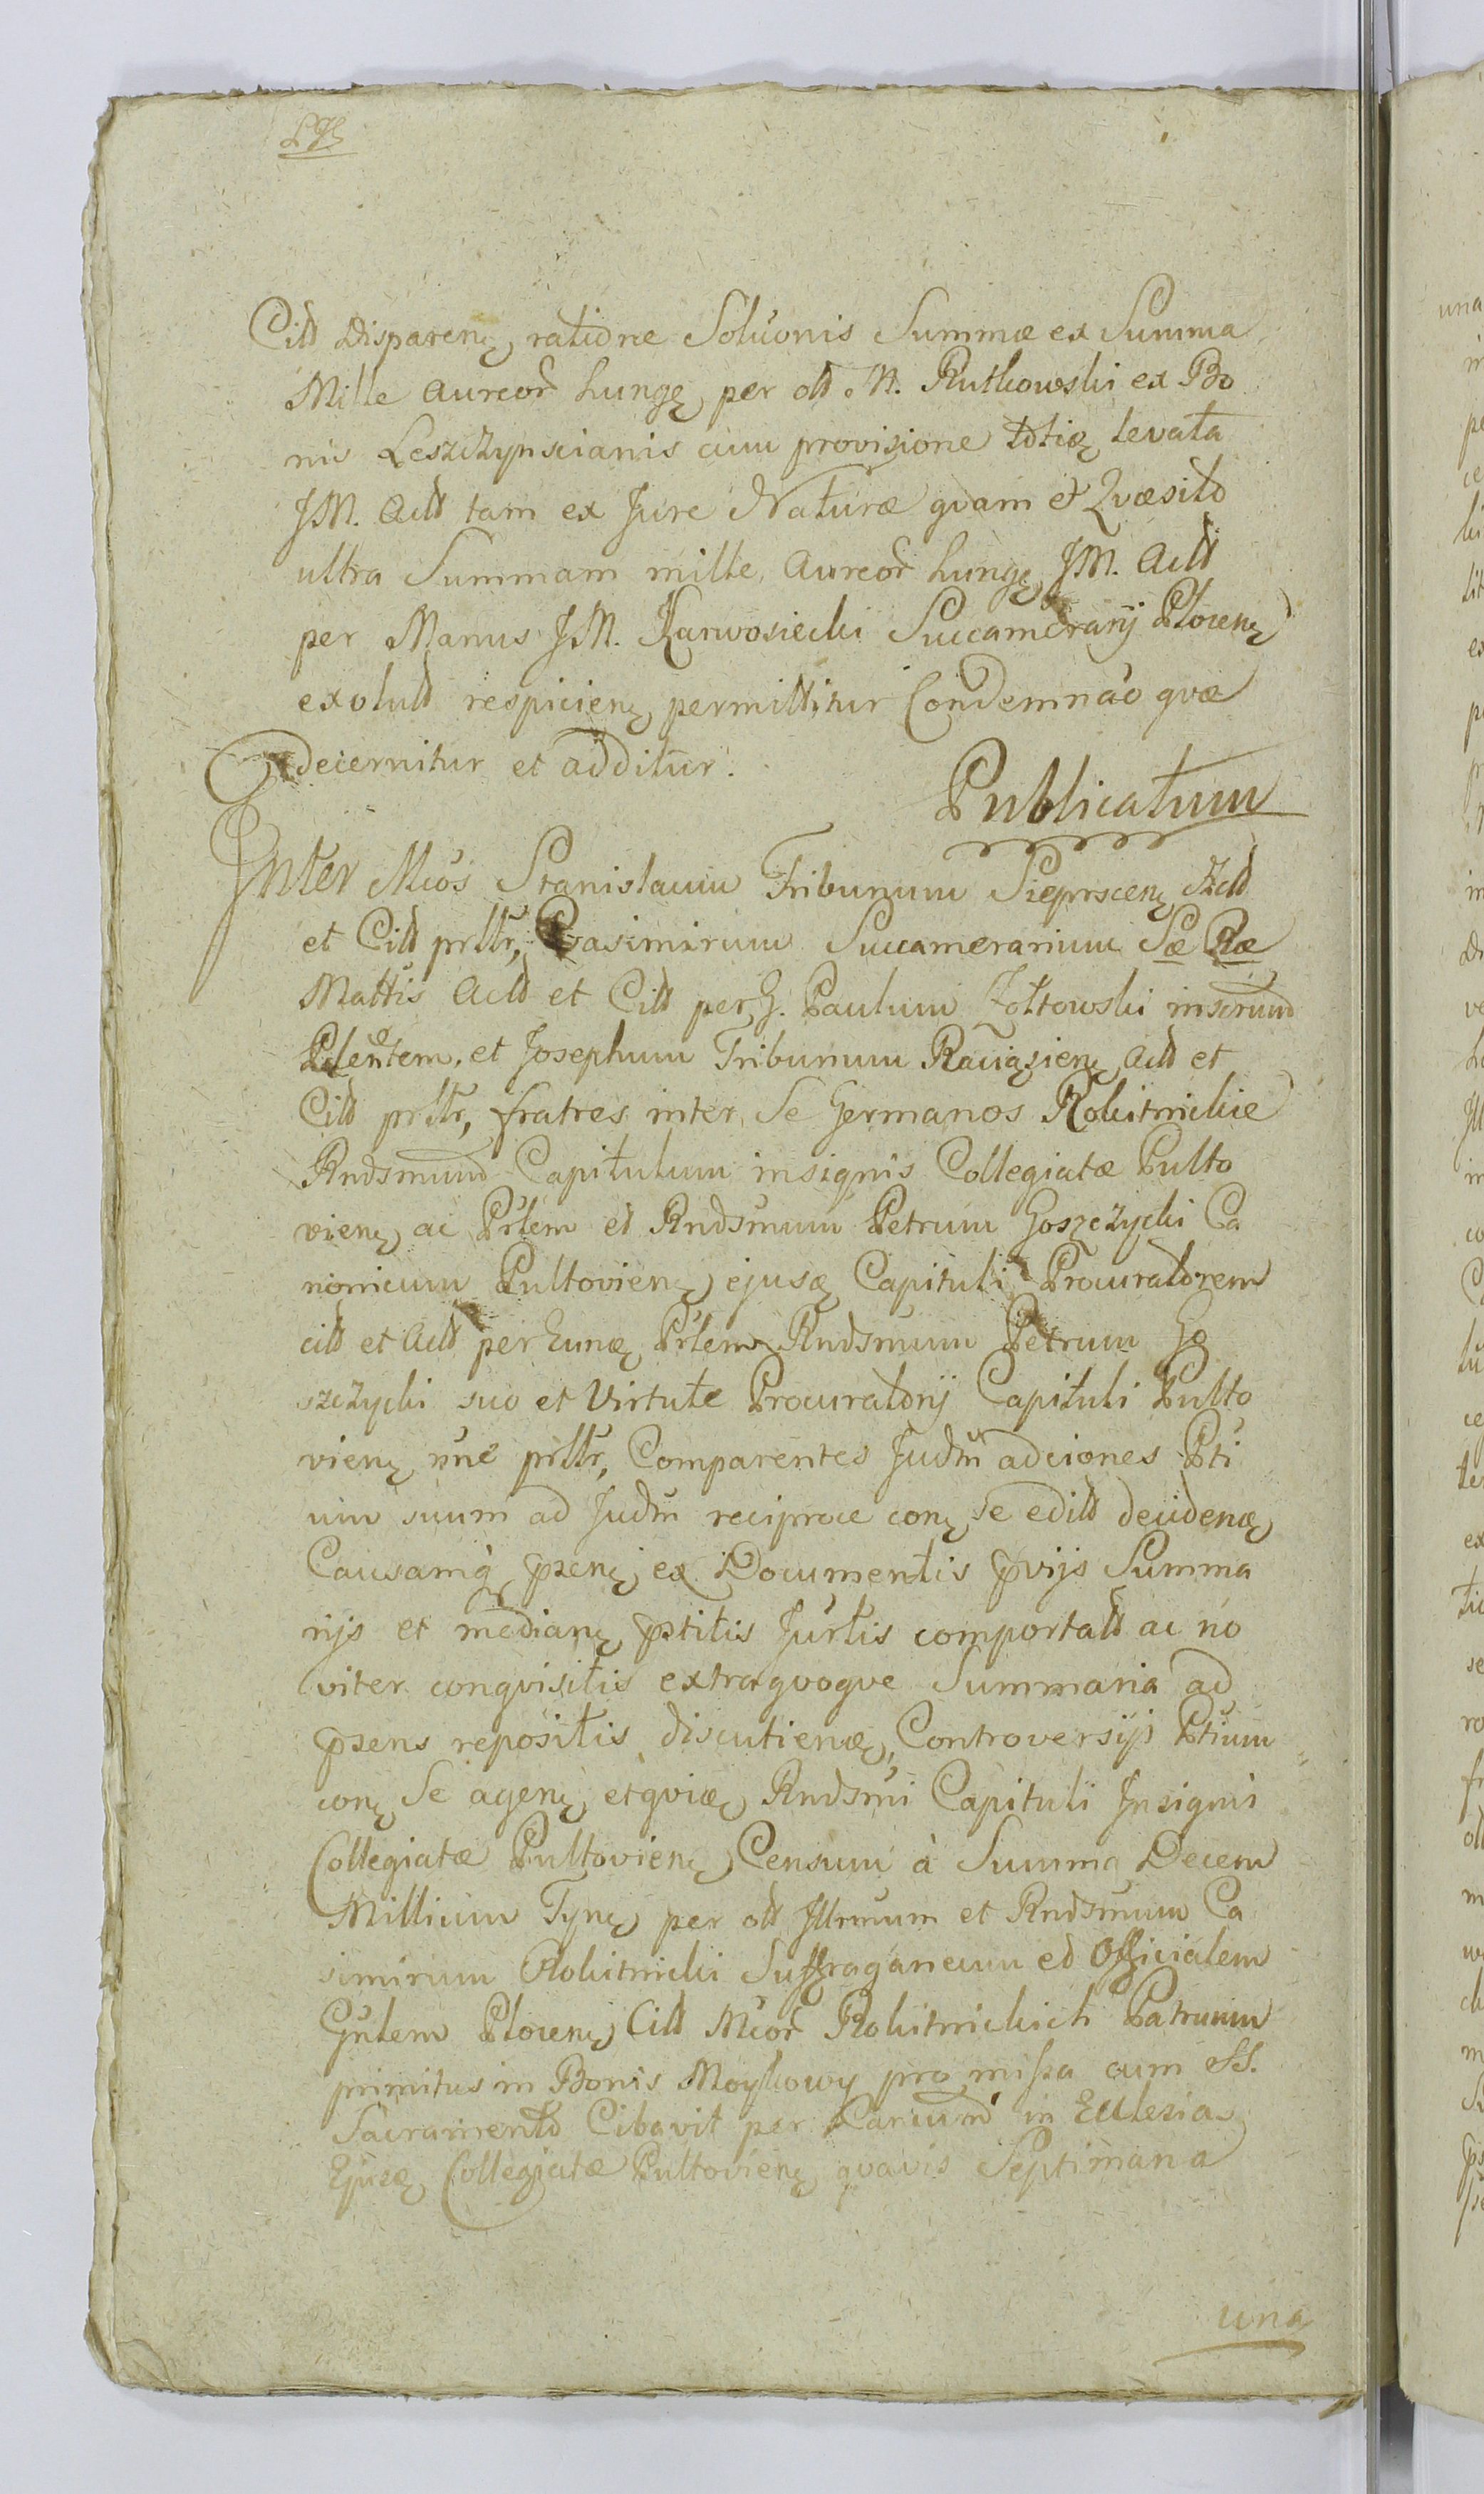 Citt Disparenę ratione Soluōnis Summæ ex Summa
Mille Aureor̄ hungę, per ott M. Rutkowski ex Bo
nis Leszczynscianis cum provisione totię levata
JM. Actt tam ex Jure Naturæ qvam et Qvæsito
ultra Summam mille Aureor̄ hungę JM. Actt
per Manus JM. Karwosiecki Succamerarij Plocenę
exolutt respicienę permittitur Condemnāo qvæ
decernitur et additur.
Publicatum
Inter Mcos Stanislaum Tribunum Sieprscenę Actt
et Citt prttr, Casimirum Succamerarium Sæ Ræ
Mattis Actt et Citt per G. Paulum Zołtowski inscrund
Plentem, et Josephum Tribunum Raviąsienę Actt et
Citt prttr, fratres inter Se Germanos Rokitnickie
Rndsmum Capitulum insignis Collegiatæ Pulto
vienę ac Prlem et Rndsmum Petrum Goszczycki Ca
nonicum Pultovienę ejusę Capituli Procuratorem
citt et Actt per Eunę Prlem Rndsmum Petrum Go
szczycki suo et Virtute Procuratorij Capituli Pulto
vienę nne prttr, Comparentes Judm adciones Pti
um suum ad Judm reciproce conę se editt decidenę
Causamq̀ pzenę ex Documentis pvijs Summa
rijs et medianę pstitis Jurtis comportatt ac no
viter conqvisitis extraqvoqve Summaria ad
pzens repositis discutienę, Controversijs Ptium
conę Se agenę etqvię Rndsmi Capituli Insignis
Collegiatæ Pultovienę Censum à Summa Decem
Millium Tynę per ott Illrmum et Rndsmum Ca
simirum Rokitnicki Suffraganeum et Officialem
Gnlem Plocenę Citt Mcor̄ Rokitnickich Patruum
primitus in Bonis Moykowy pro missa cum SS.
Sacramento Cibavit per
in Ecclesia
Ejusę Collegiatæ Pultovienę qvavis Septimana
una